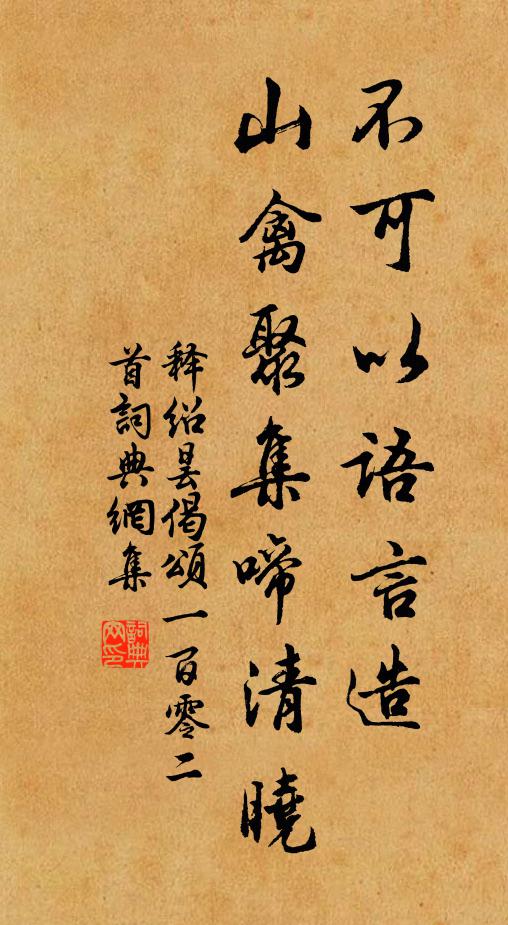 不可以語言造
山禽聚集啼清曉
释紹曇偈頌一百零二
首詞典網集
詞典
网印